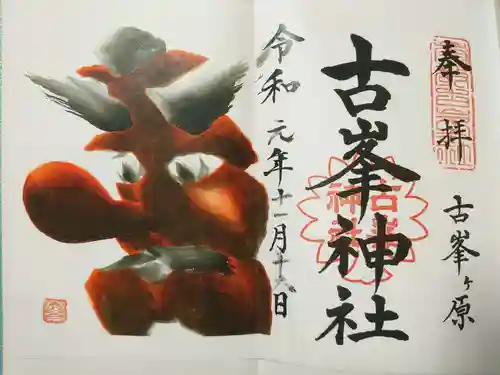 奉拝
古峯ヶ原
古峯神社
古峯
神社
令和元年十一月十六日